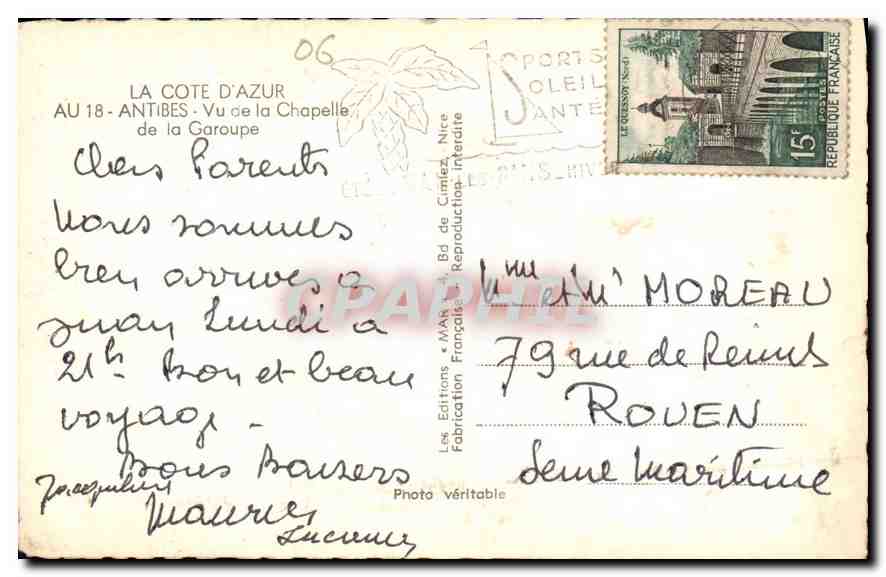 06
LA COTE D'AZUR
AU 18 - ANTIBES - Vu de la Chapelle
de la Garoupe
SPORTS
SOLEIL
SANTÉ
LE QUESNOY (Nord)
15F
POSTES
REPUBLIQUE FRANÇAISE
Chers Parents
Nous sommes
bien arrivés a
Juan Lundi a
21hs Bon et beau
voyage -
Bons Baisers
Jacqueline
Maurice
Lucienne
Les Editions « MAR », Bd de Cimiez, Nice
Fabrication Française - Reproduction interdite
CPAPHIL
Mme et Mr MOREAU
79 rue de Reims
ROUEN
Seine Maritime
Photo véritable